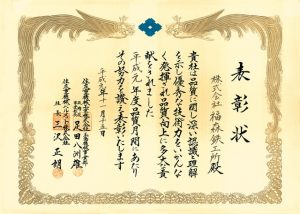 表彰状
株式会社 福森鉄工所殿
貴社は品質に関し深い認識と理解
を示し優秀な技術力をいかんな
く発揮され品質向上に多大な貢
献をされました
平成元年度品質月間にあたり
その努力を讃え表彰いたします
平成元年十一月十五日
足田八洲雄
三沢正明